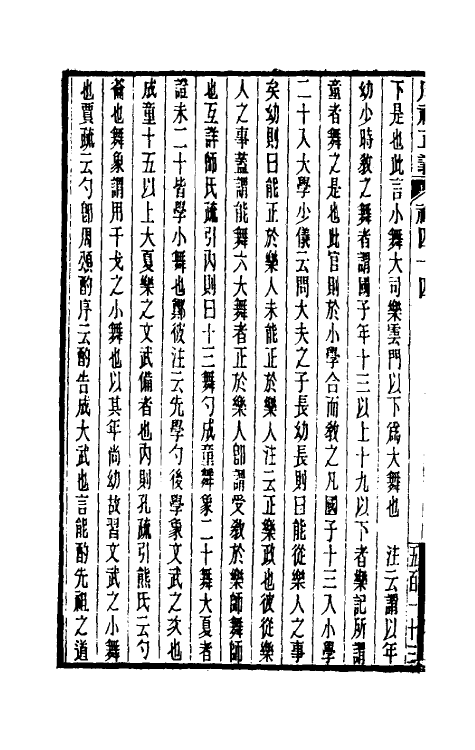 周禮正義
禮四十四
下是也此言小舞大司樂雲門以下爲大舞也　注云謂以年
幼少時教之舞者謂國子年十三以上十九以下者樂記所謂
童者舞之是也此官則於小學合而教之凡國子十三入小學
二十入大學少儀云問大夫之子長幼長則曰能從樂人之事
矣幼則曰能正於樂人未能正於樂人注云正樂政也彼從樂
人之事蓋謂能舞六大舞者正於樂人卽謂受教於樂師舞師
也互詳師氏疏引內則曰十三舞勺成童舞象二十舞大夏者
證未二十皆學小舞也鄭彼注云先學勺後學象文武之次也
成童十五以上大夏樂之文武備者也內則孔疏引熊氏云勺
籥也舞象謂用干戈之小舞也以其年尚幼故習文武之小舞
也賈疏云勺卽周頌酌序云酌告成大武也言能酌先祖之道